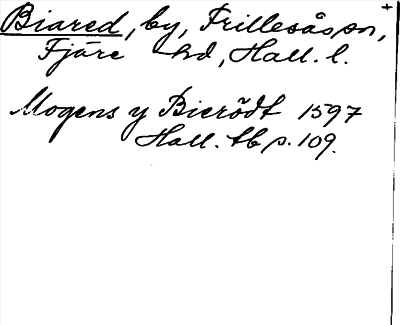 Biared, by, Frillesås sn,
Fjäre hd, Hall. l.
Mogens y Bierödt 1597
Hall. tb p. 109.